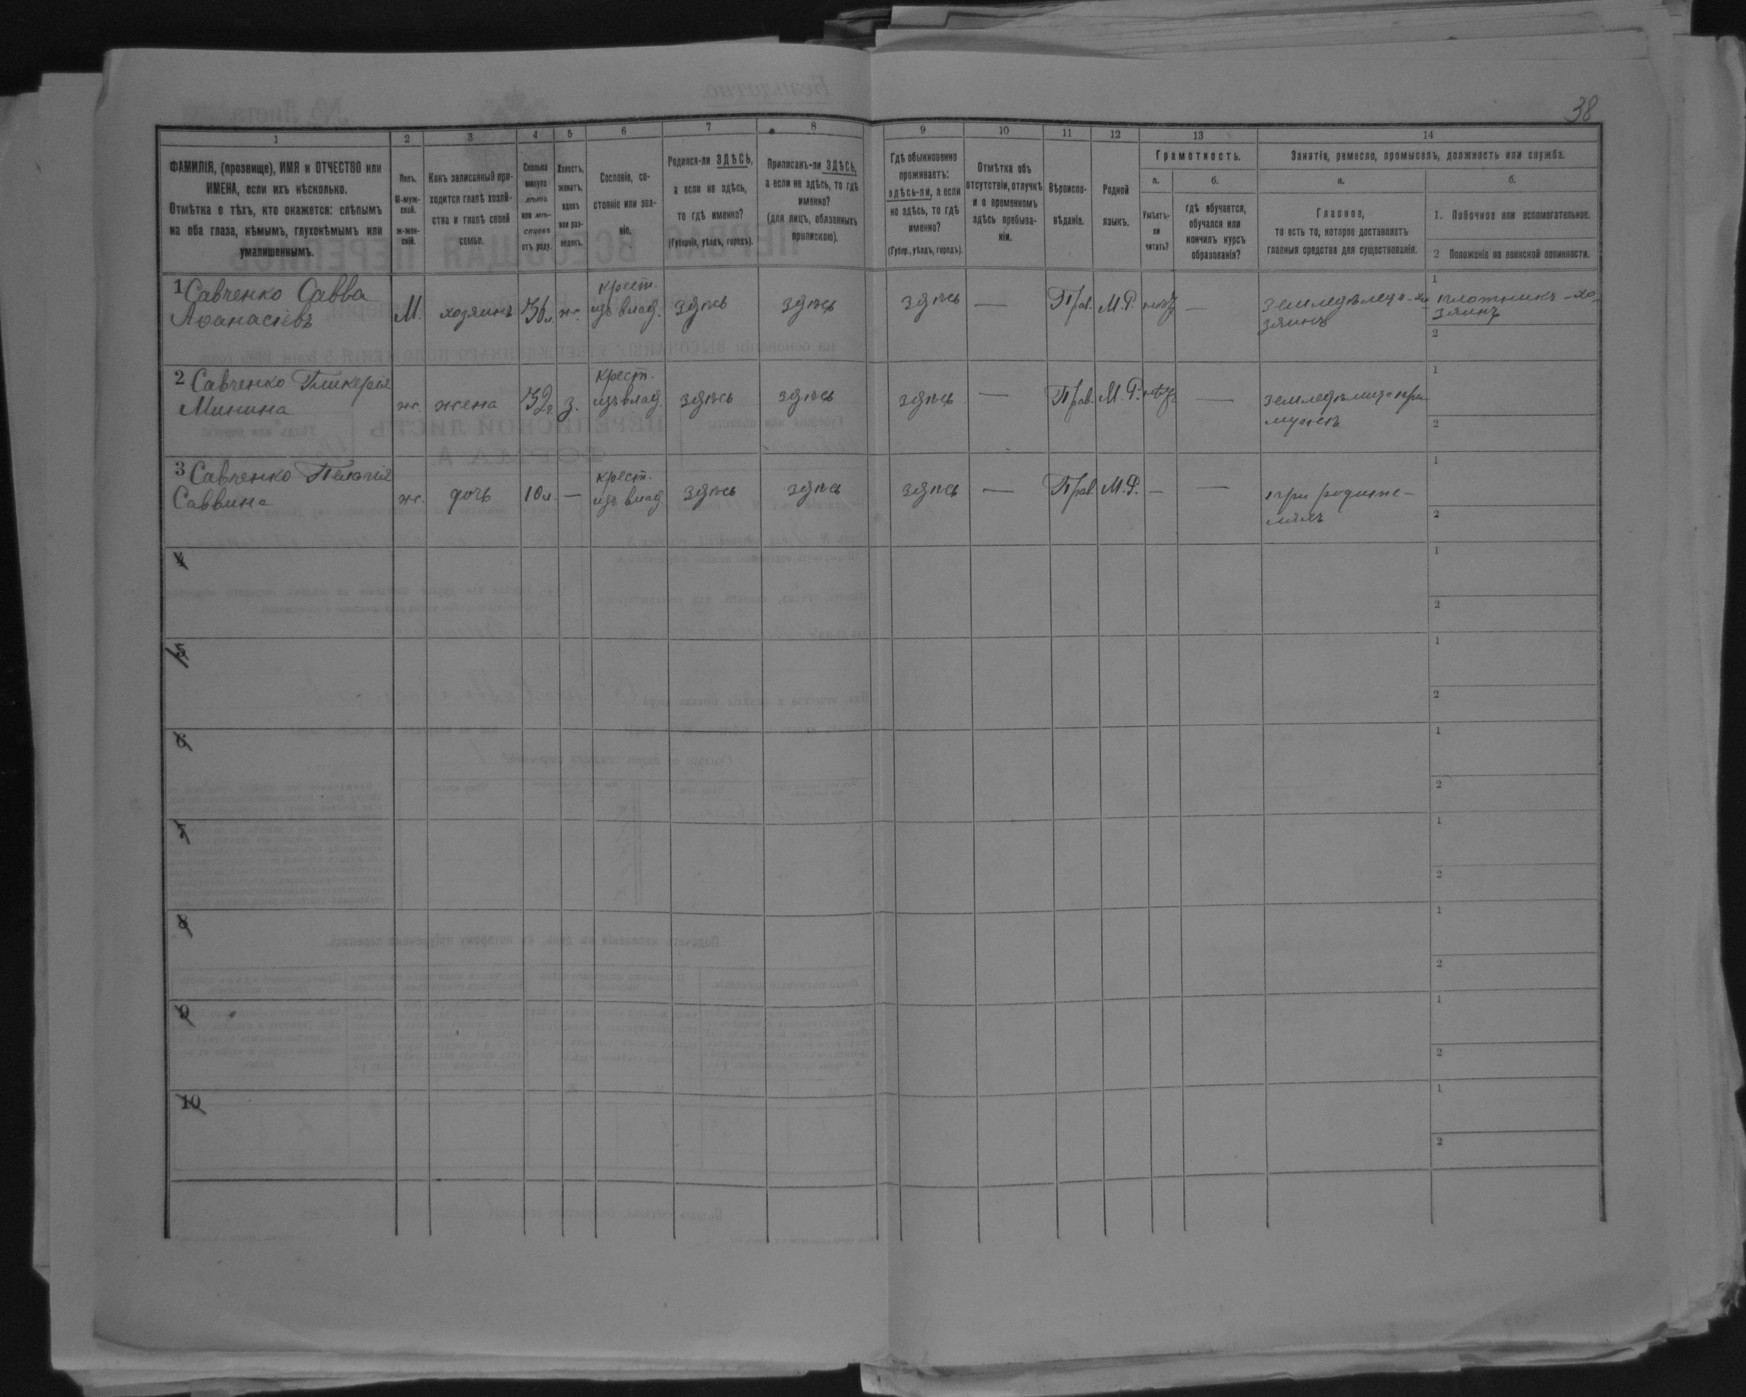 38
1 2 3 4 5 6 7 8 9 10 11 12 13 14
ФАМИЛІЯ, (прозвище), ИМЯ и ОТЧЕСТВО или
ИМЕНА, если ихъ нѣсколько.
Отмѣтка о тѣхъ, кто окажется: слѣпымъ
на оба глаза, нѣмымъ, глухонѣмымъ или
умалишеннымъ.
Полъ.
М-муж-
ской.
ж-жен-
скій.
Какъ записанный при-
ходится главѣ хозяй-
ства и главѣ своей
семьи.
Сколько
минуло
лѣтъ
или мѣ-
сяцевъ
отъ роду.
Холостъ,
женатъ,
вдовъ
или раз-
веденъ.
Сословіе, со-
стояніе или зва-
ніе.
Родился-ли ЗДѢСЬ,
а если не здѣсь,
то гдѣ именно?
(Губернія, уѣздъ, городъ).
Приписанъ-ли ЗДѢСЬ,
а если не здѣсь, то гдѣ
именно?
(для лицъ, обязанныхъ
припискою).
Гдѣ обыкновенно
проживаетъ:
здѣсь-ли, а если
не здѣсь, то гдѣ
именно?
(Губер., уѣздъ, городъ).
Отмѣтка объ
отсутствіи, отлучкѣ
и о временномъ
здѣсь пребыва-
ніи.
Вѣроиспо-
вѣданіе.
Родной
языкъ.
Грамотность.
а.
Умѣетъ-
ли
читать?
б.
гдѣ обучается,
обучался или
кончилъ курсъ
образованія?
Занятіе, ремесло, промыселъ, должность или служба.
а.
Главное,
то есть то, которое доставляетъ
главныя средства для существованія.
б.
1. Побочное или вспомогательное.
2 Положеніе по воинской повинности.
1 Савченко Савва
Аѳанасіевъ
М. хозяинъ 36 л. ж. крест.
изъ влад. здѣсь здѣсь здѣсь — Прав. М.Р. нѣтъ — земледѣлецъ-хо
зяинъ
1 плотникъ-хо-
зяинъ
2
2 Савченко Гликерія
Минина
ж. жена 32 г. з. крест.
изъ влад. здѣсь здѣсь здѣсь — Прав. М.Р. нѣтъ — земледѣлица при
мужѣ
1
2
3 Савченко Пелагія
Саввина
ж. дочь 10 л. — крест.
изъ влад. здѣсь здѣсь здѣсь — Прав. М.Р. — — при родите-
ляхъ
1
2
4
1
2
5
1
2
6
1
2
7
1
2
8
1
2
9
1
2
10
1
2